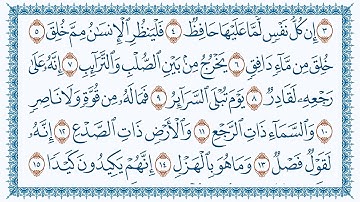 ٣ إِن كُلُّ نَفْسٍ لَّمَّا عَلَيْهَا حَافِظٌ ٤ فَلْيَنظُرِ الْإِنسَانُ مِمَّ خُلِقَ ٥
خُلِقَ مِن مَّاءٍ دَافِقٍ ٦ يَخْرُجُ مِن بَيْنِ الصُّلْبِ وَالتَّرَائِبِ ٧ إِنَّهُ عَلَىٰ
رَجْعِهِ لَقَادِرٌ ٨ يَوْمَ تُبْلَى السَّرَائِرُ ٩ فَمَا لَهُ مِن قُوَّةٍ وَلَا نَاصِرٍ
١٠ وَالسَّمَاءِ ذَاتِ الرَّجْعِ ١١ وَالْأَرْضِ ذَاتِ الصَّدْعِ ١٢ إِنَّهُ
لَقَوْلٌ فَصْلٌ ١٣ وَمَا هُوَ بِالْهَزْلِ ١٤ إِنَّهُمْ يَكِيدُونَ كَيْدًا ١٥